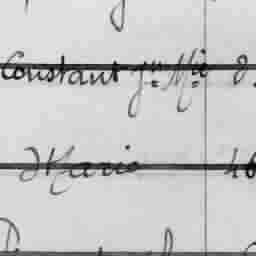 Constant Jn Mie 8.
d Marie 46